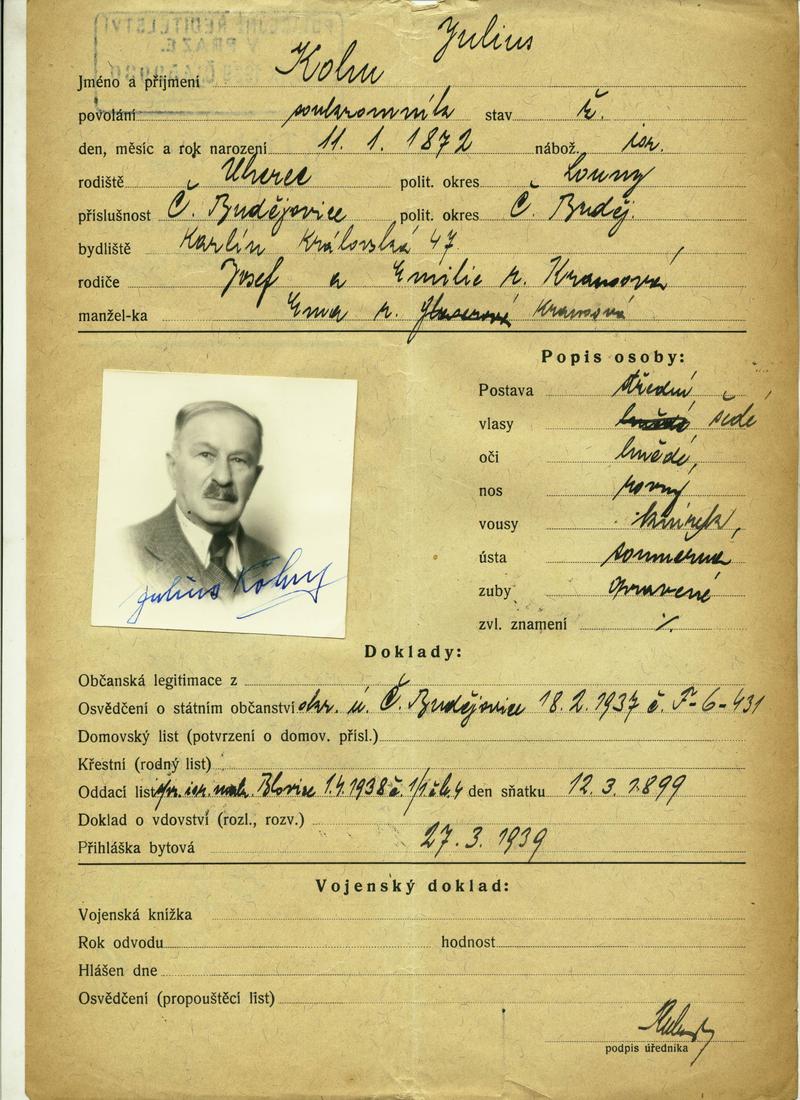 Julius
Jméno a příjmení Kohn
povolání soukromník stav ž.
den, měsíc a rok narození 11. 1. 1872 nábož. isr.
rodiště Uherec polit. okres Louny
příslušnost Č. Budějovice polit. okres Č. Buděj.
bydliště Karlín Královská 47.
rodiče Josef a Emilie r. Krausová
manžel-ka Ema r. Krausová
Popis osoby:
Postava střední
vlasy hnědé šedé
oči hnědé,
nos rovný
vousy knírek,
ústa souměrná
zuby opravené
zvl. znamení ∕.
Julius Kohn
Doklady:
Občanská legitimace z
Osvědčení o státním občanství okr. ú. Č. Budějovice 18. 2. 1937 č. F-6-431
Domovský list (potvrzení o domov. přísl.)
Křestní (rodný list)
Oddací list isr. matr. Blovice 1.4.1938 č. den sňatku 12. 3. 1899
Doklad o vdovství (rozl., rozv.)
Přihláška bytová 27. 3. 1939
Vojenský doklad:
Vojenská knížka
Rok odvodu hodnost
Hlášen dne
Osvědčení (propouštěcí list)
podpis úředníka